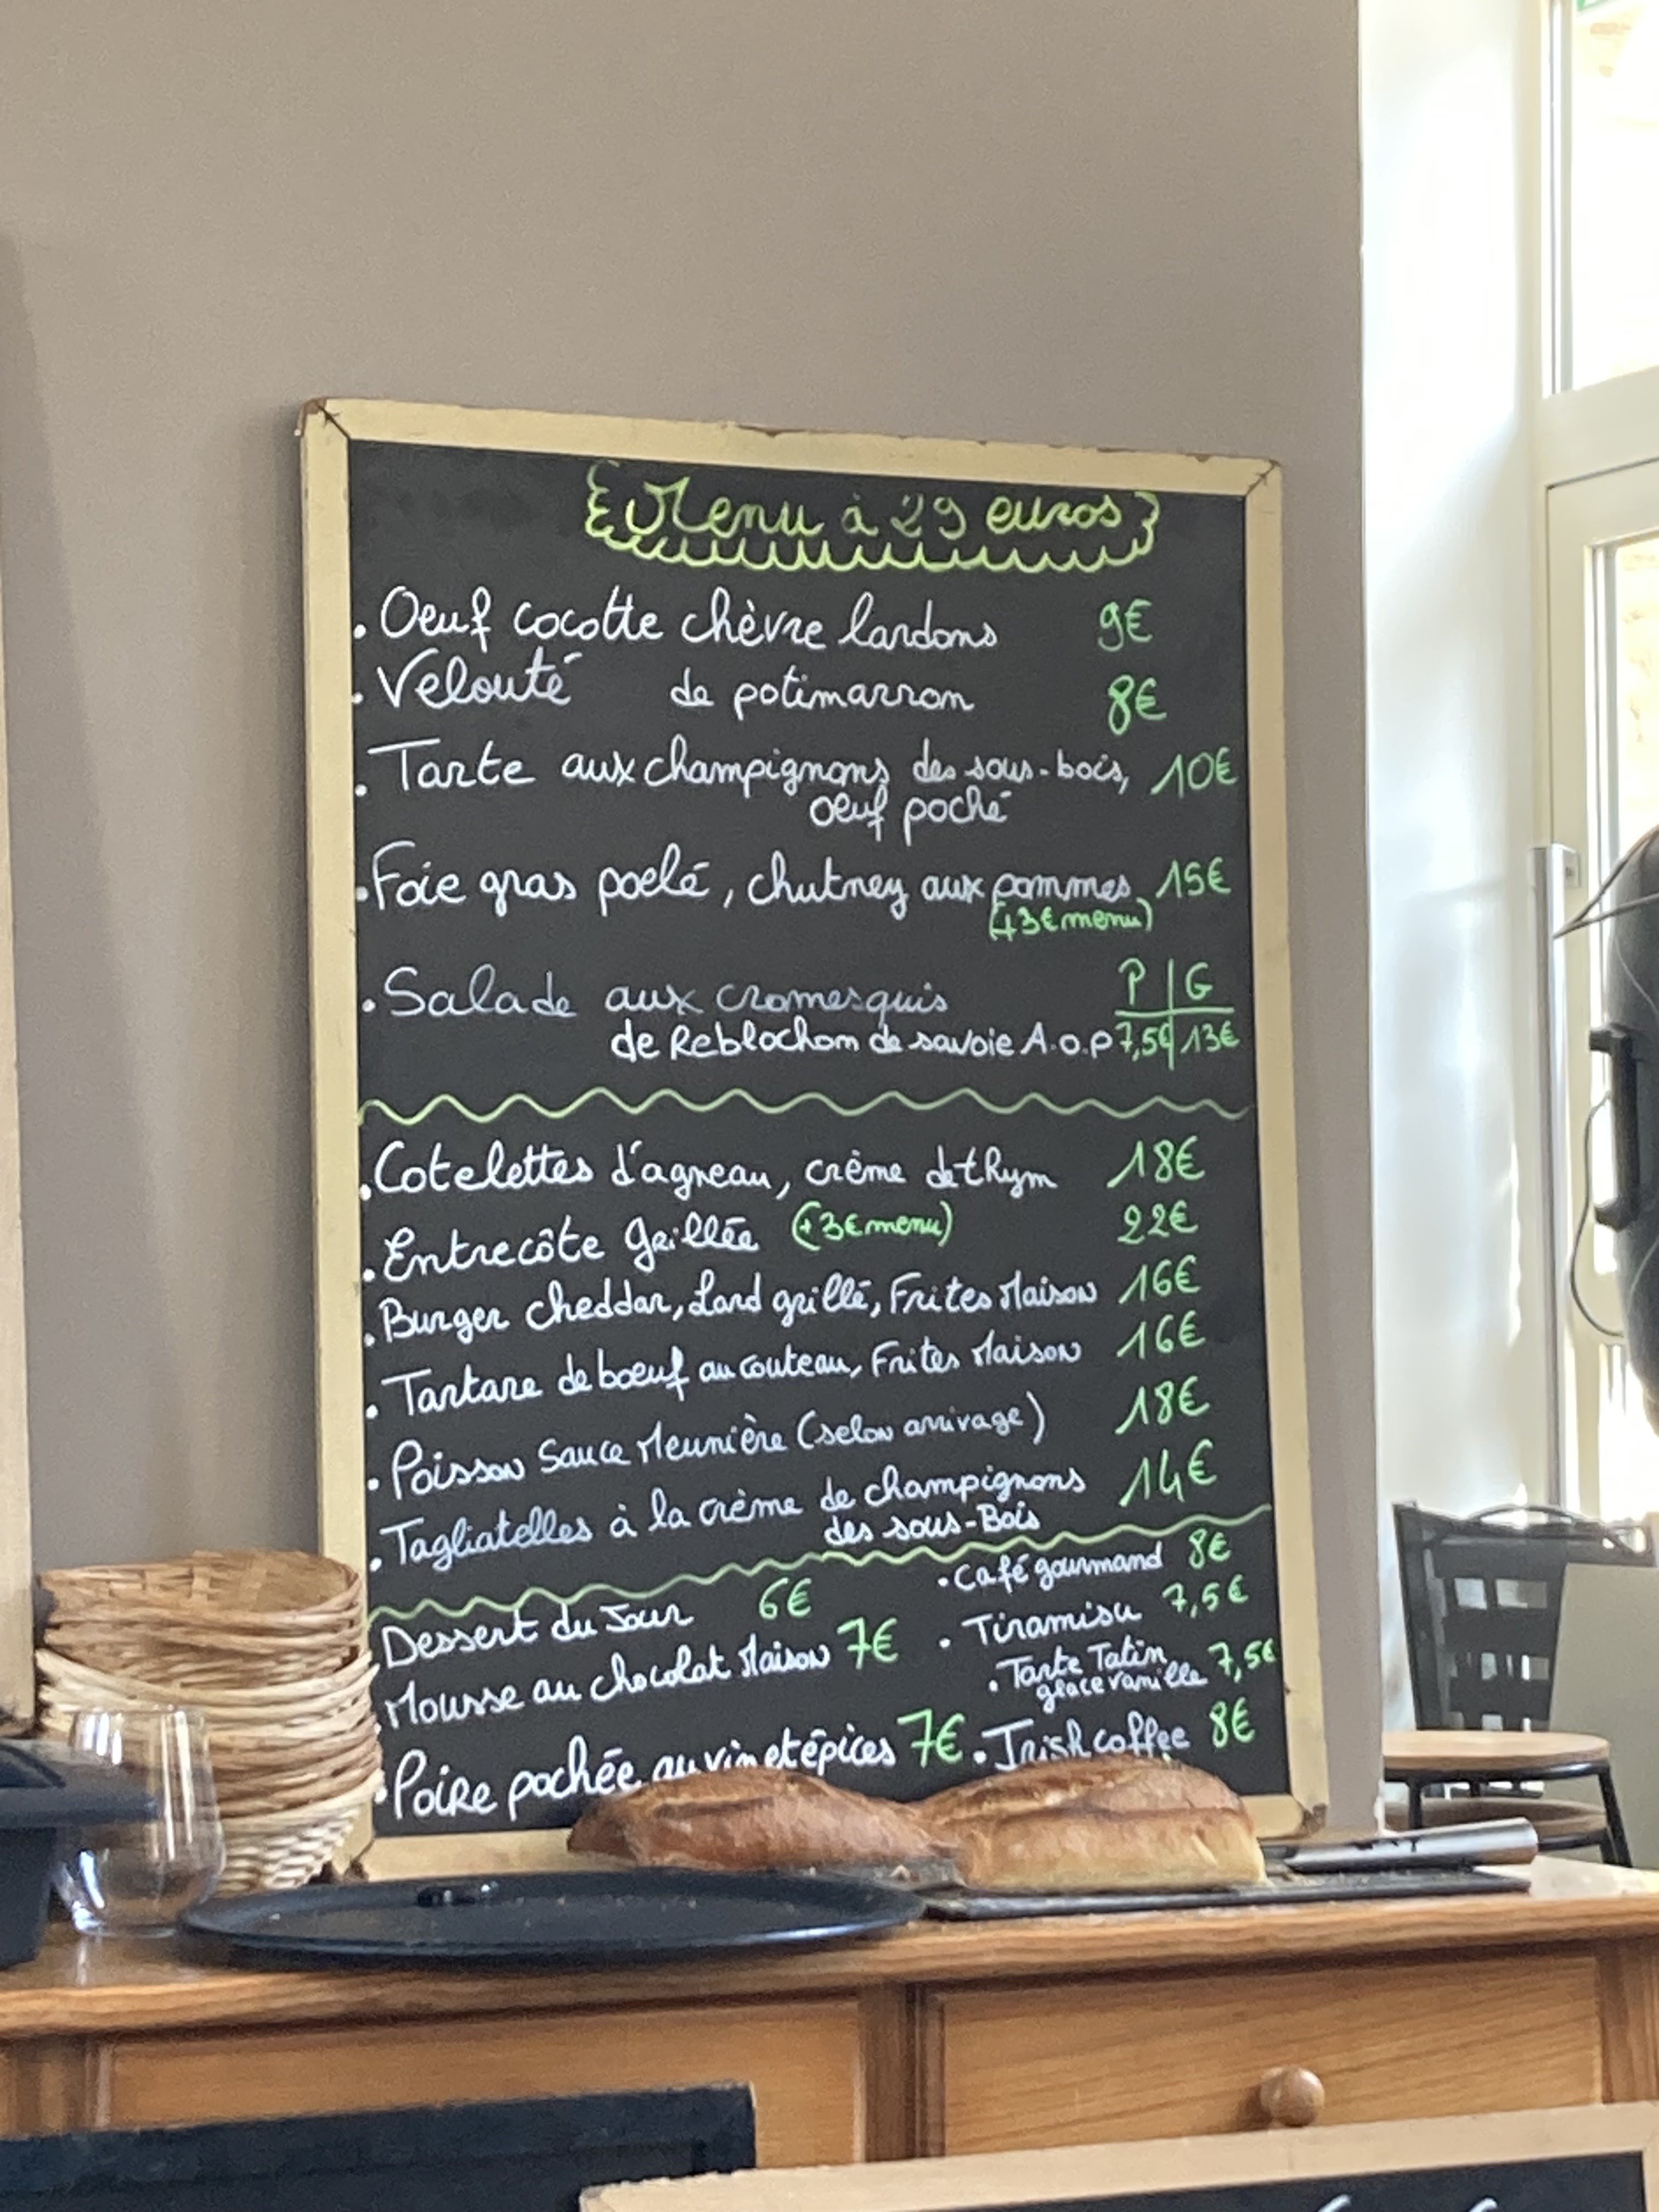 Menu à 29 euros
. Oeuf cocotte chèvre lardons 9€
. Velouté de potimarron 8€
. Tarte aux champignons des sous-bois, 10€
oeuf poché
. Foie gras poelé, chutney aux pommes 15€
(+3€ menu)
P | G
. Salade aux cromesquis
de Reblochon de savoie A.O.P 7,5€ | 13€
. Cotelettes d'agneau, crème de thym 18€
. Entrecôte Grillée (+3€ menu) 22€
. Burger cheddar, Lard grillé, Frites Maison 16€
. Tartare de boeuf au couteau, Frites Maison 16€
. Poisson Sauce Meunière (selon arrivage) 18€
. Tagliatelles à la crème de champignons 14€
des sous-Bois
Dessert du Jour 6€
. Mousse au chocolat Maison 7€
. Poire pochée au vin et épices 7€
. Café gourmand 8€
. Tiramisu 7,5€
. Tarte Tatin 7,5€
glace vanille
. Irish coffee 8€